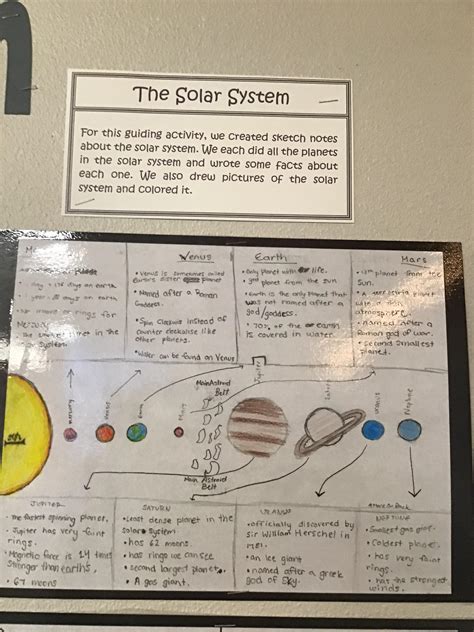 The Solar System
For this guiding activity, we created sketch notes
about the solar system. We each did all the planets
in the solar system and wrote some facts about
each one. We also drew pictures of the solar
system and colored it.
Venus
• Venus is sometimes called
earths sister planet
• Named after a Roman
Goddess.
• Spin Clockwise instead of
counter clockwise like
other planets.
• Water can be found on Venus
Earth
• Only Planet with life.
• 3rd planet from the sun.
• Earth is the only Planet that
was not named after a
god/goddess.
• 70% of the earth
is covered in water.
Mars
planet from the
sun.
planet
thin
atmosphere.
• named after a
Roman god of war.
• second smallest
planet.
on earth
on earth
moons or rings for
in the
System
mercury
Venus
Earth
Main Astroid
Belt
Jupiter
Saturn
uranus
Neptune
Main Astroid
Belt
JUPITER
• The fastest spinning planet.
• Jupiter has very faint
rings.
• Magnetic force is 14 times
stronger than earths.
• 67 moons
SATURN
• least dense planet in the
solar System
• has 62 moons.
• has rings we can see
• second largest planet.
• A gas giant.
URANUS
• officially discovered by
Sir William Herschel in
• an ice giant
• named after a greek
god of Sky.
NEPTUNE
• Smallest gas giant.
• Coldest planet.
• has very faint
rings.
• has the strongest
winds.